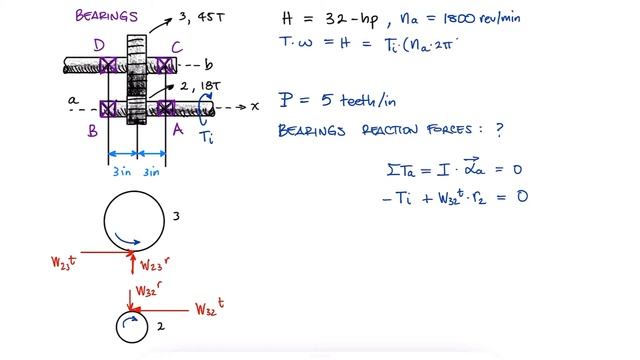 BEARINGS
3, 45T
D
C
b
2, 18T
a
x
B
A
Ti
3in
3in
3
W23t
W23r
W32r
W32t
2
H = 32-hp, na = 1800 rev/min
T·ω = H = Ti·(na·2π
P = 5 teeth/in
BEARINGS REACTION FORCES: ?
ΣTa = I·αa = 0
-Ti + W32t·r2 = 0